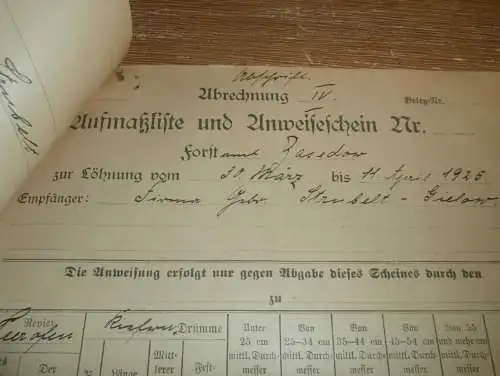 Strubelt
Abschrift.
Abrechnung IV.
Beleg-Nr.
Aufmaßliste und Anweiseschein Nr.
Forstamt Basedow
zur Löhnung vom 30. März bis 11 April 1925
Empfänger: Firma Gebr. Strubelt - Gielow
Die Anweisung erfolgt nur gegen Abgabe dieses Scheines durch den
zu
Revier
Kiefern, Drümme
Unter 25 cm mittl. Durchmesser
Von 25—34 cm mittl. Durchmesser
Von 35—44 cm mittl. Durchmesser
Von 45—54 cm mittl. Durchmesser
Von 55 und mehr cm mittl. Durchmesser
Der
Länge
Mittlerer
Fest-